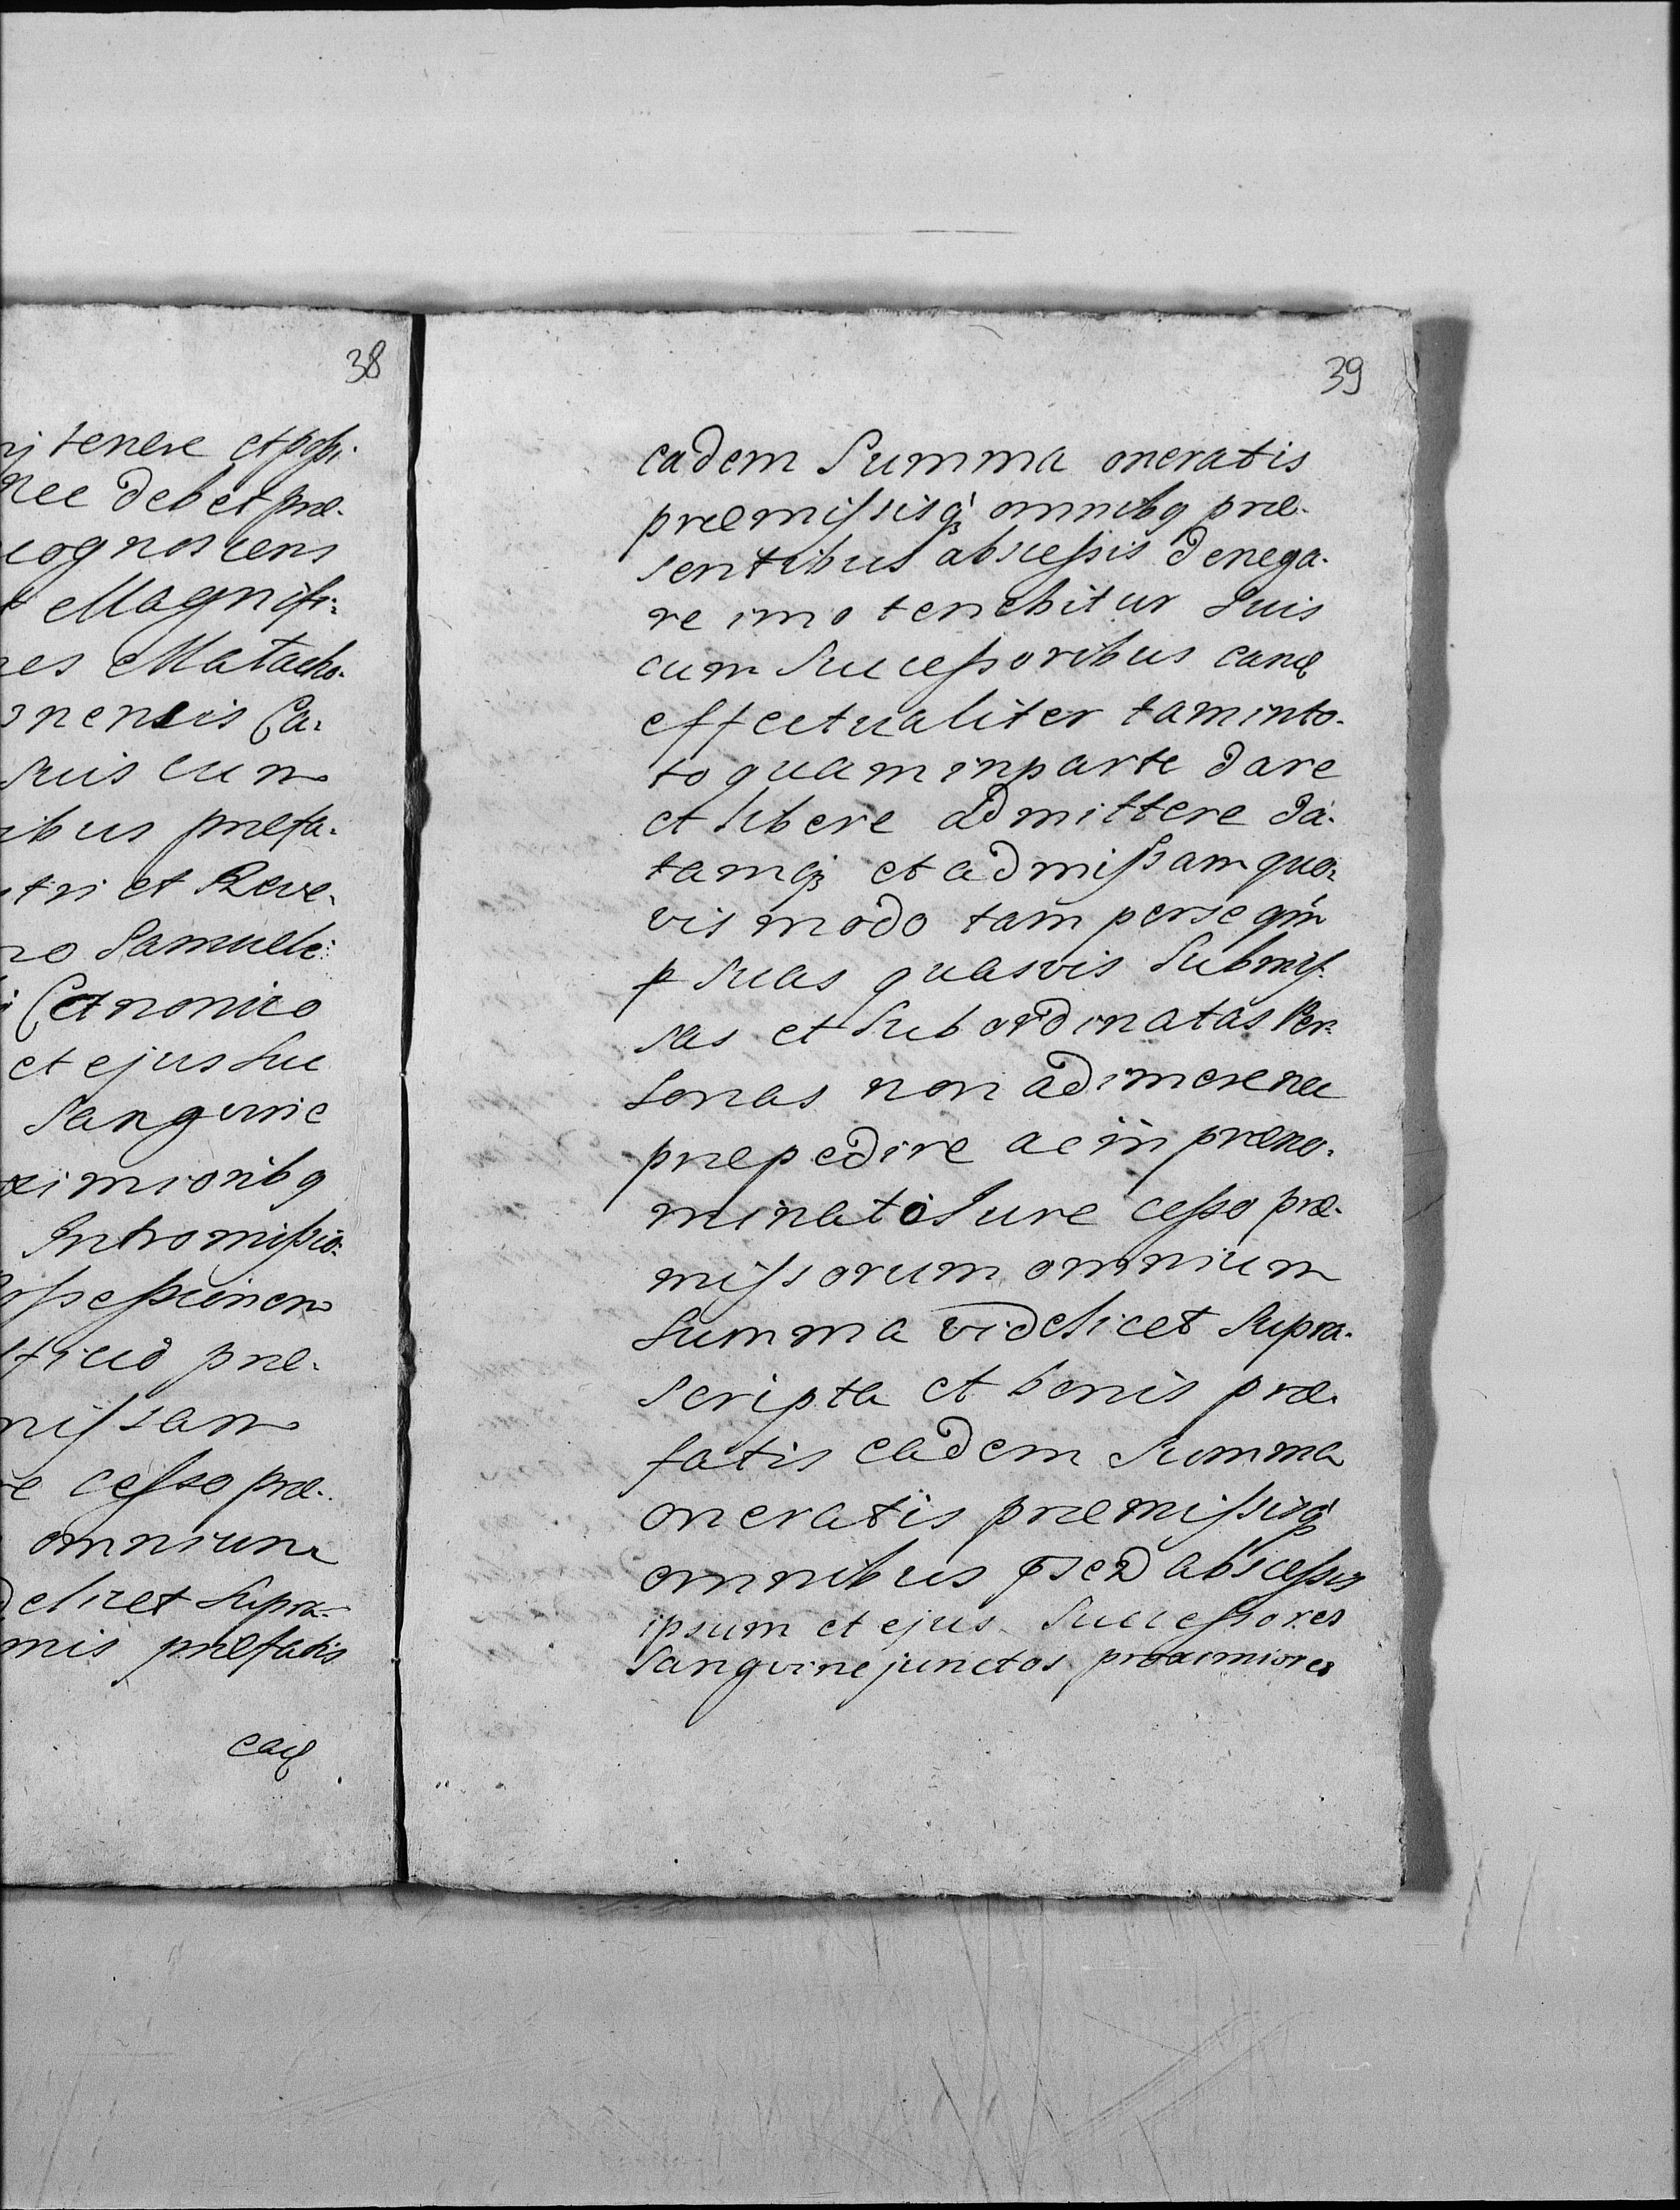 38
ri tenere et possi-
nec debet præ-
cognoscens
Magnifi-
nes Matacho-
onensis Ca-
suis cum
ibus præfa-
stri et Reve-
no Samueli
Canonico
et ejus suc
Sanguine
oximioribq
Intromissio-
ossessionem
præ-
missam
re cesso præ-
omnium
delicet supra-
nis præfatis
eadē
39
eadem Summa oneratis
præmissisq; omnibq præ-
sentibus abscessis denega-
re imo tenebitur Suis
cum Successoribus eandē
effectualiter tam in to-
to quam in parte dare
et libere admittere da-
tamq; et admissam quo-
vis modo tam per se qm̃
p suas quasvis submis-
sas et subordinatas Per-
sonas non adimere nec
præpedire ac in præno-
minato Jure cesso præ-
missorum omnium
Summa videlicet supra-
scripta et bonis præ-
fatis eadem Summa
oneratis præmissisq;
omnibus abscessis
ipsum et ejus Successores
Sanguine junctos proximiores